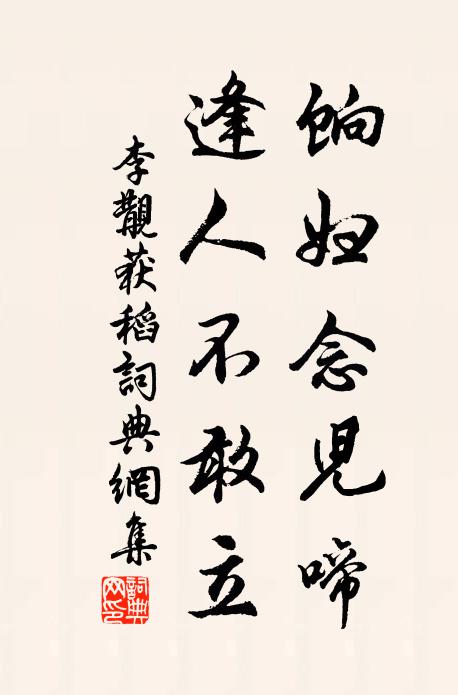 餉婦念兒啼
逢人不敢立
李覯获稻詞典網集
詞典网印